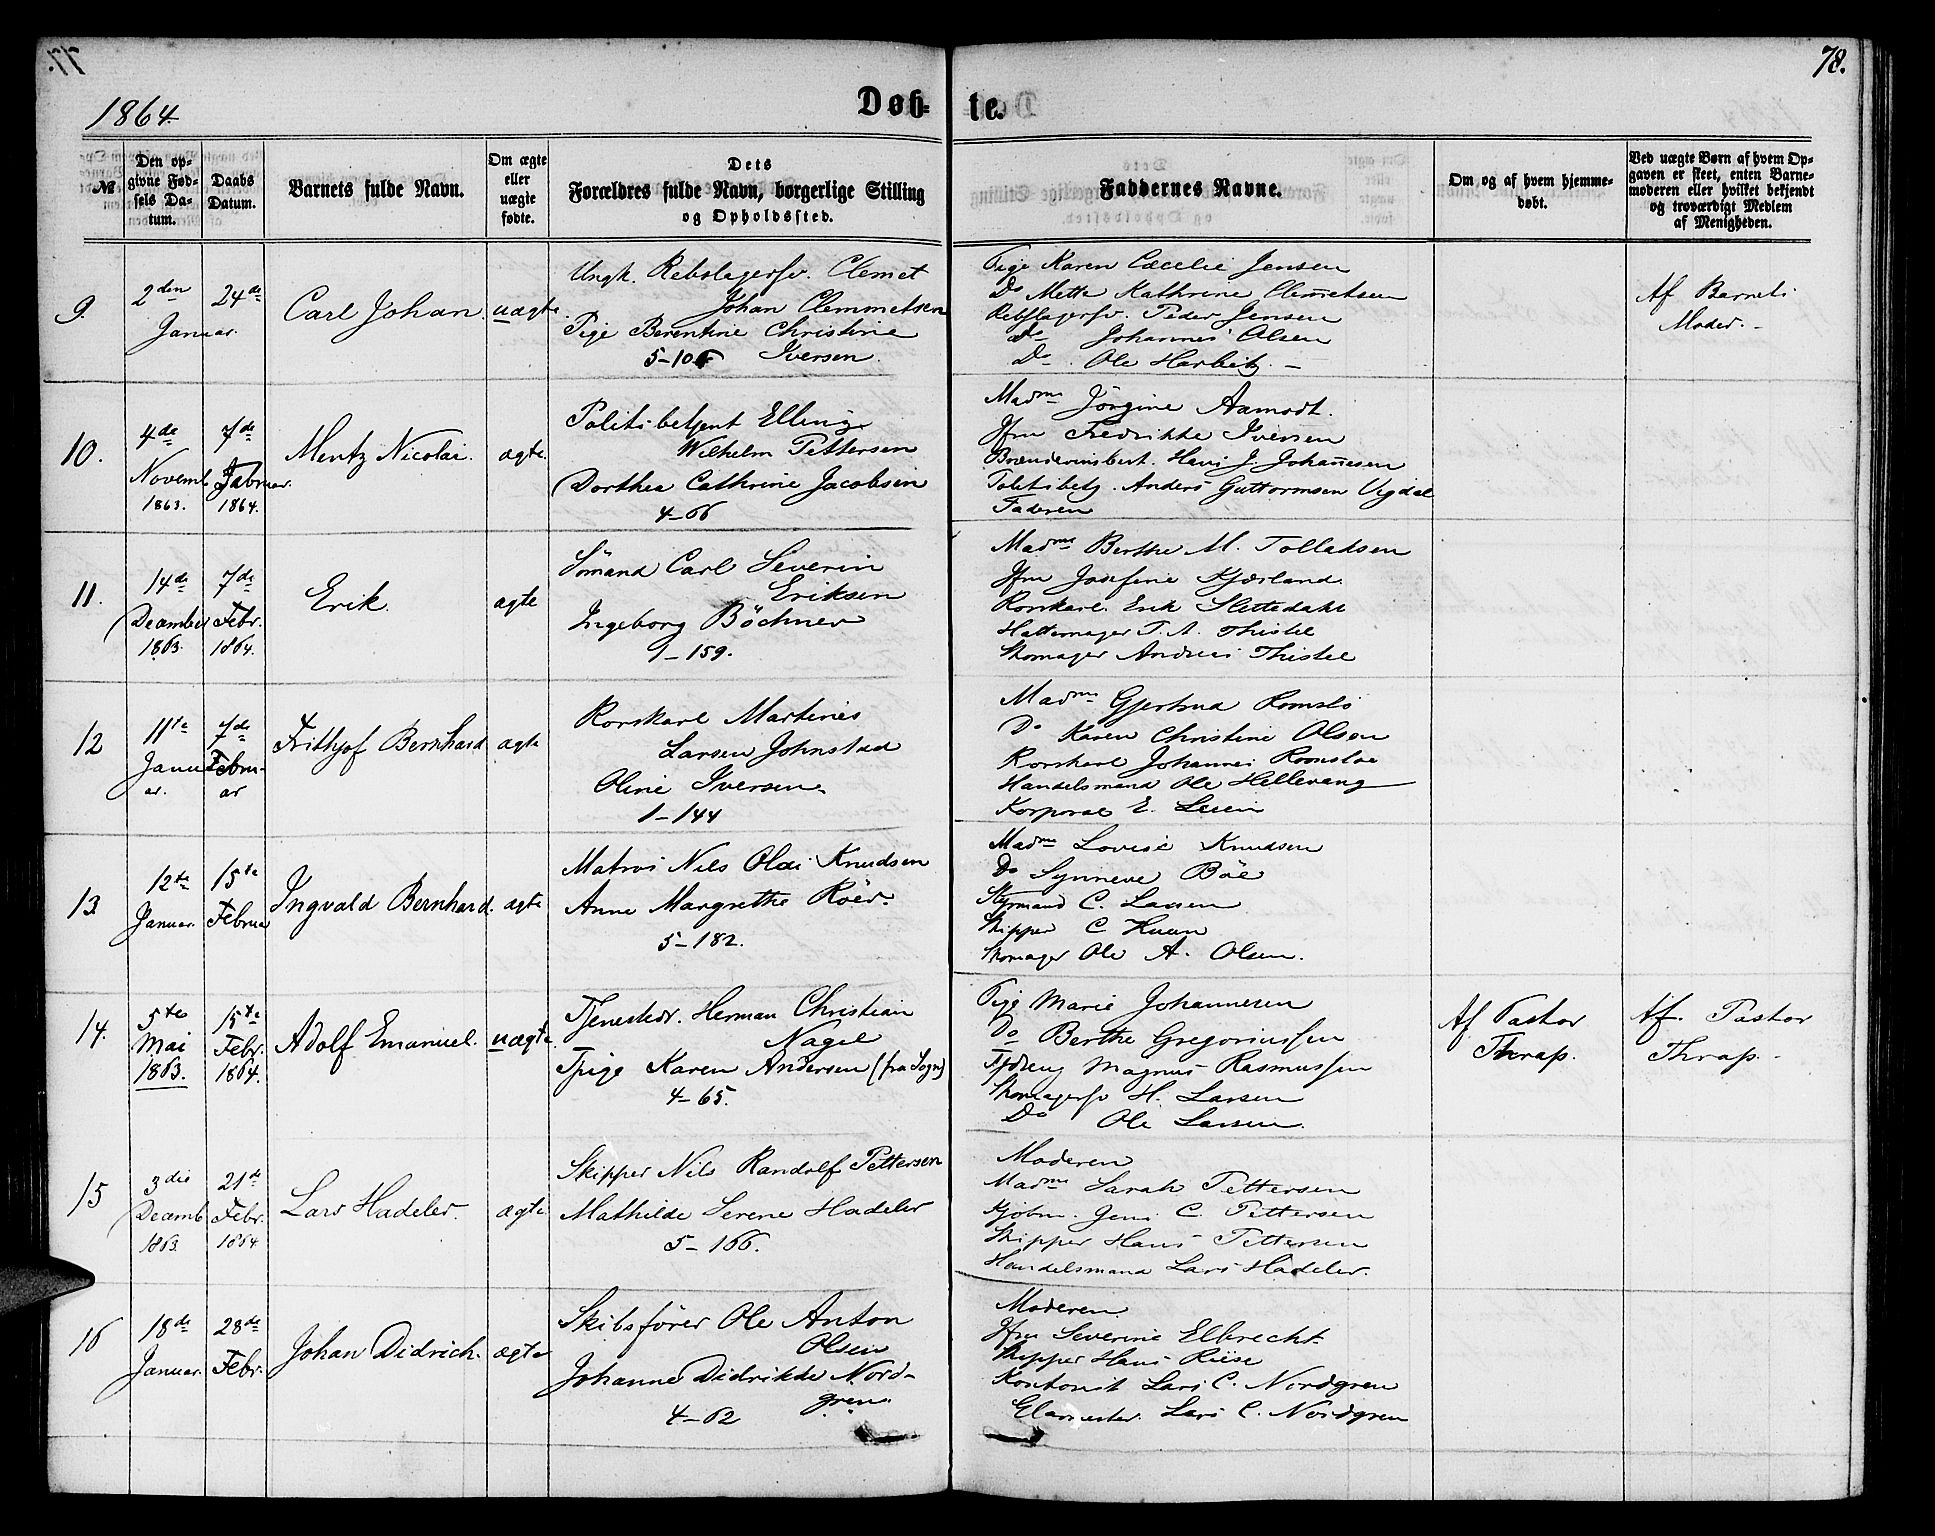 77.
78.
1864.
Døb-
te.
№
Den op-
givne Fød-
sels Da-
tum.
Daabs
Datum.
Barnets fulde Navn.
Om ægte
eller
uægte
fødte.
Dets
Forældres fulde Navn, borgerlige Stilling
og Opholdssted.
Faddernes Navne.
Om og af hvem hjemme-
døbt.
Ved uægte Børn af hvem Op-
gaven er skeet, enten Barne-
moderen eller hvilket bekjendt
og troværdigt Medlem
af Menigheden.
9.
2den
Januar.
24de
Carl Johan.
uægte.
Ungk. Rebslagersv. Clemet
Johan Clemmetsen
Pige Berentine Christine
Iversen.
5-106
Pige Karen Cæcelie Jensen
Do Mette Kathrine Clemetsen
Rebslagersv. Peder Jensen
Do Johannes Olsen
Do. Ole Harbitz. –
Af Barnets
Moder. –
10.
4de
Novemb
1863.
7de
Februar.
1864.
Mentz Nicolai.
ægte.
Politibetjent Elling
Wilhelm Pettersen
Dorthea Cathrine Jacobsen
4-66
Madme Jörgine Aamodt.
Jfru Fredrikke Iversen
Hans J. Johanesen
Politibetj. Anders Guttormsen Vigdal
Faderen
11.
14de
December
1863.
7de
Febr.
1864.
Erik.
ægte
Sömand Carl Severin
Eriksen
Ingeborg Böchner
1-159.
Madme Berthe M. Tolladsen
Jfru Josefine Kjærland.
Rorskarl. Erik Slettedahl
Hattemager T. A. Thistel
Skomager Andreas Thistel
12
11te
Janu
ar.
7de
Febru-
ar
Frithjof Bernhard
ægte
Rorskarl Martines
Larsen Johnstad
Oline Iversen.
1-144
Madme Gjertrud Romslo
Do Karen Christine Olsen
Rorskarl Johannes Romsloe
Handelsmand Ole Hellevang
Korporal E.
13.
12te
Januar.
15te
Februar
Ingvald Bernhard.
ægte
Matros Nils Olai Knudsen
Anne Margrethe Röer.
5-182.
Madme Lovise Knudsen
Do Synneve Böe
Styrmand C. Larsen
Skipper C
Skomager Ole A. Olsen.
14.
5te
Mai
1863.
15te
Febr.
1864.
Adolf Emanuel.
uægte.
Tjenestedr. Herman Christian
Nagel
Tpige Karen Andersen (fra Sogn)
4-65.
Pige Marie Johannesen
Do Berthe Gregoriussen
Tjdreng Magnus Rasmussen
Skomagersv H. Larsen
Do Ole Larsen.
Af Pastor
Thrap.
Af. Pastor
Thrap. –
15
3die
Decemb
1863.
21de
Febr.
1864
Lars Hadeler.
ægte
Skipper Nils Randolf Pettersen
Mathilde Serene Hadeler
5-166.
Moderen
Madme Sarah Pettersen
Kjöbm. Jens C. Pettersen
Skipper Hans Pettersen
Handelsmand Lars Hadeler.
16
18de
Januar.
28de
Febr.
Johan Didrich.
ægte
Skibsförer Ole Anton
Olsen
Johanne Didrikke Nord-
gren.
4-62
Moderen
Jfru Severine Elbrecht
Skipper Hans Riise
Kontorist Lars C. Nordgren
Glarmester. Lars C. Nordgren